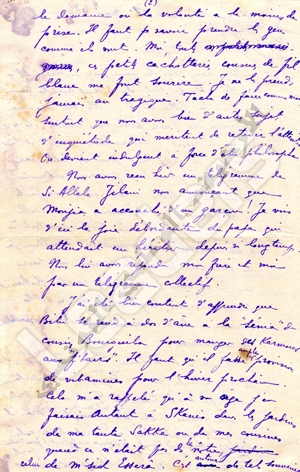 (2)
le domaine ou la volonté a le moins de
prise. Il faut pouvoir prendre le gens
comme il est. Moi, tout
ces petits cachotteries cousues de fil
blanc me font sourire. Je ne le prends
jamais au tragique. Tache de faire comme moi
surtout que nous avons bien d'autres sujets
d'inquiétude qui méritent de retenir l'att
On devient indulgent à force d'être philosophe
Nous avons reçu hier un télégramme de
Si Allala Jilani nous annonçant que
Monjia a accouché d'un garçon! Je vois
d'ici la joie débordante du papa qui
attendait un héritier depuis si longtemps.
Nous lui avons répondu mon frère et moi
par un télégramme collectif.
J'ai été bien content d'apprendre que
à dos d'âne à la "Senia" du
cousin Bourguiba pour manger des Karmous
Il faut qu'il fasse provision
de vitamines pour l'hiver prochain
Cela m'a rappelé qu'à son age j'en
faisais autant à Skanès dans les jardins
de ma tante ou de mes cousines
quand ce n'était pas dans le notre
celui de M'sid Aissa. C'est